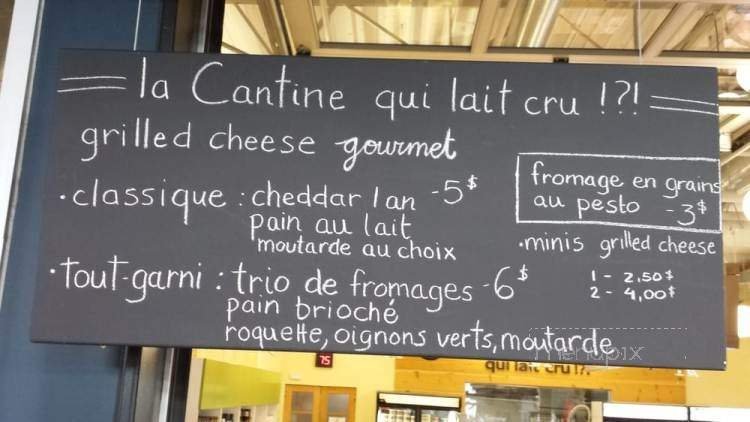 la Cantine qui lait cru !?!
grilled cheese gourmet
• classique : cheddar 1 an - 5$
pain au lait
moutarde au choix
• tout-garni : trio de fromages - 6$
pain brioché
roquette, oignons verts, moutarde
fromage en grains
au pesto - 3$
• minis grilled cheese
1 - 2,50$
2 - 4,00$
menupix
75
qui lait cru !?!